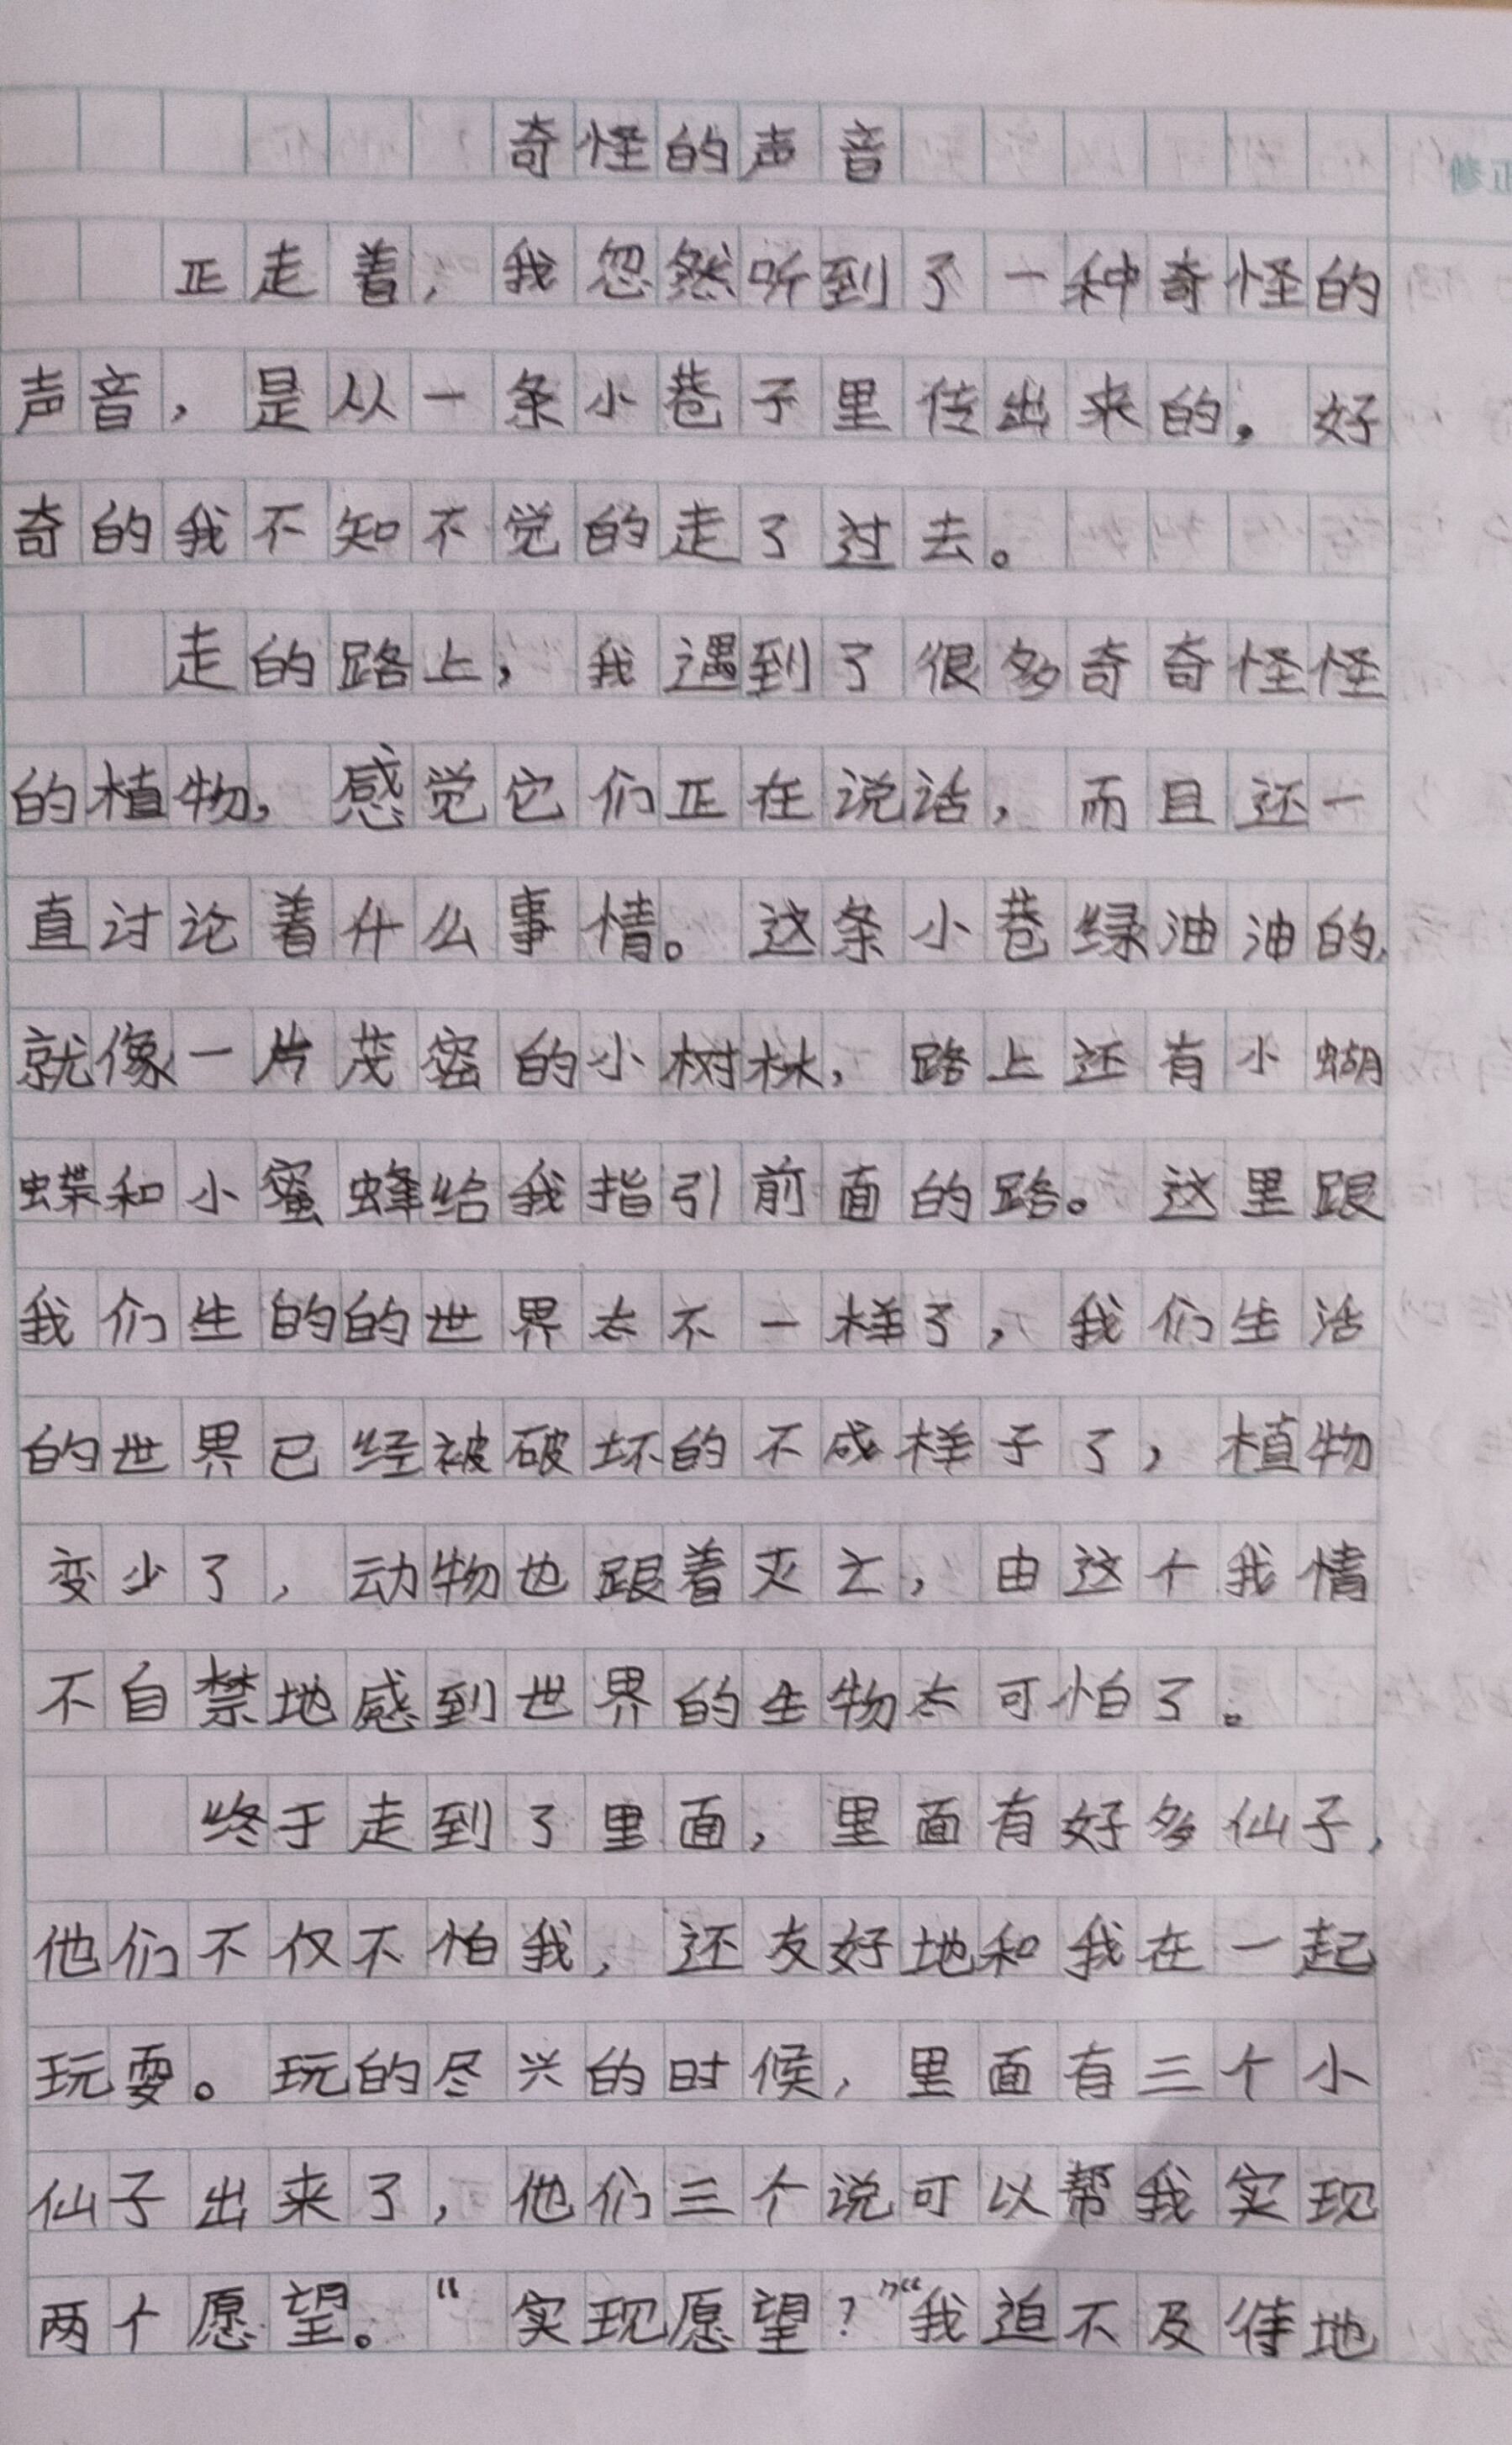 奇怪的声音
正走着，我忽然听到了一种奇怪的
声音，是从一条小巷子里传出来的。好
奇的我不知不觉的走了过去。
走的路上，我遇到了很多奇奇怪怪
的植物，感觉它们正在说话，而且还一
直讨论着什么事情。这条小巷绿油油的，
就像一片茂密的小树林，路上还有小蝴
蝶和小蜜蜂给我指引前面的路。这里跟
我们生的的世界太不一样了，我们生活
的世界已经被破坏的不成样子了，植物
变少了，动物也跟着灭亡，由这个我情
不自禁地感到世界的生物太可怕了。
终于走到了里面，里面有好多仙子，
他们不仅不怕我，还友好地和我在一起
玩耍。玩的尽兴的时候，里面有三个小
仙子出来了，他们三个说可以帮我实现
两个愿望。“实现愿望？”“我迫不及待地